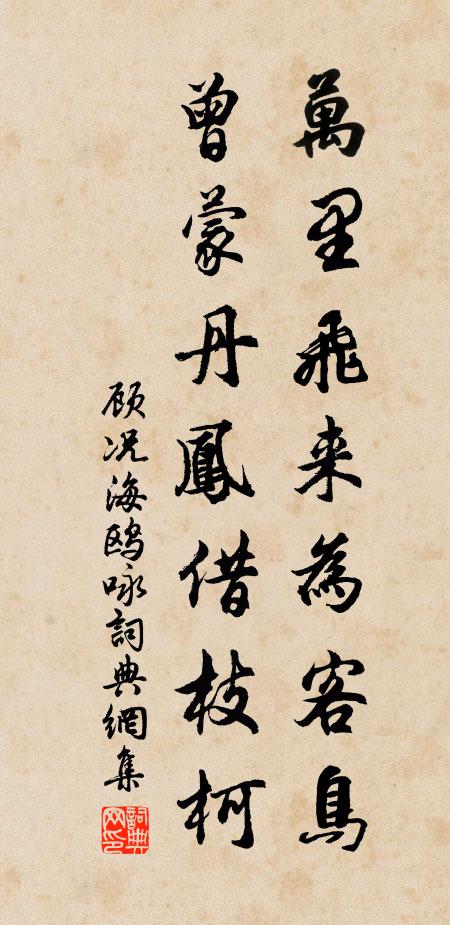 萬里飛来為客鳥
曾蒙丹鳳借枝柯
顾况海鸥咏詞典網集
詞典网印